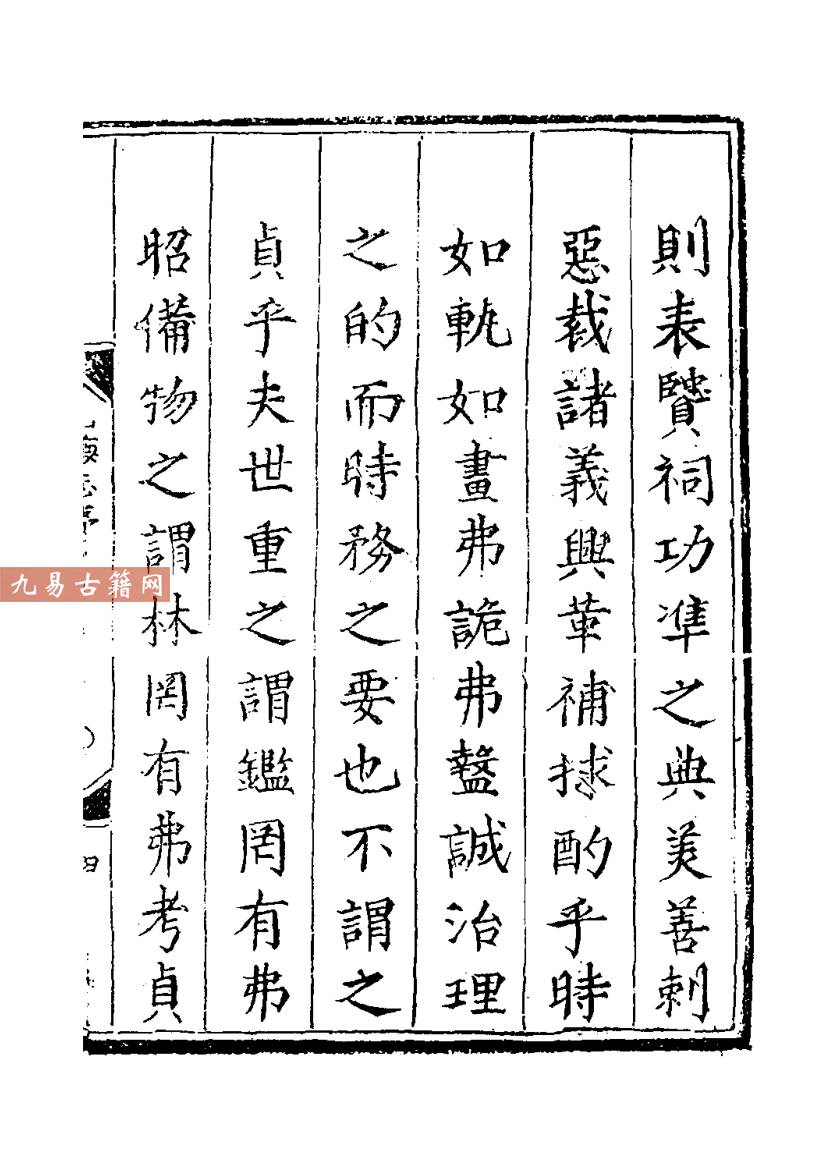 則表賢祠功準之典美善刺
惡裁諸義興革補捄酌乎時
如軌如畫弗詭弗盭誠治理
之的而時務之要也不謂之
貞乎夫世重之謂鑑罔有弗
昭備物之謂林罔有弗考貞
海志序
四
九易古籍网